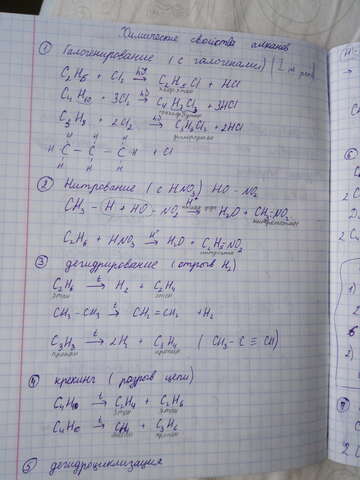 Химические свойства алканов
① Галогенирование (с галогенами)
C₂H₆ + Cl₂ →hν C₂H₅Cl + HCl
C₄H₁₀ + 3Cl₂ →hν C₄H₇Cl₃ + 3HCl
+ 2Cl₂ →hν C₃H₆Cl₂ + 2HCl
H H
H C – C – C H + Cl
H H H
② Нитрование (с HNO₃) HO – NO₂
CH₃ – H + HO – NO₂ → H₂O + CH₃–NO₂
нитрометан
C₂H₆ + HNO₃ →H⁺ H₂O + C₂H₅–NO₂
нитроэтан
③ дегидрирование (отрыв H₂)
C₂H₆ →t H₂ + C₂H₄
этан этен
CH₃ – CH₃ →t CH₂ = CH₂ + H₂
C₃H₈ →t 2H₂ + C₃H₄ ( CH₃ – C ≡ CH)
пропан пропин
④ крекинг ( разрыв цепи)
C₄H₁₀ →t C₂H₄ + C₂H₆
этен этан
C₄H₁₀ →t CH₄ + C₃H₆
метан пропен
⑤ дегидроциклизация